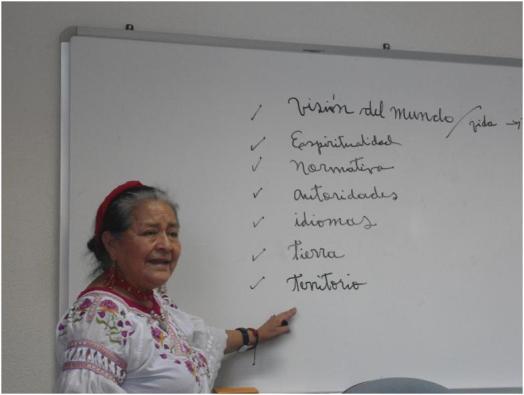 ✓ Visión del mundo / vida
✓ Espiritualidad
✓ Normativa
✓ autoridades
✓ idiomas
✓ Tierra
✓ Territorio